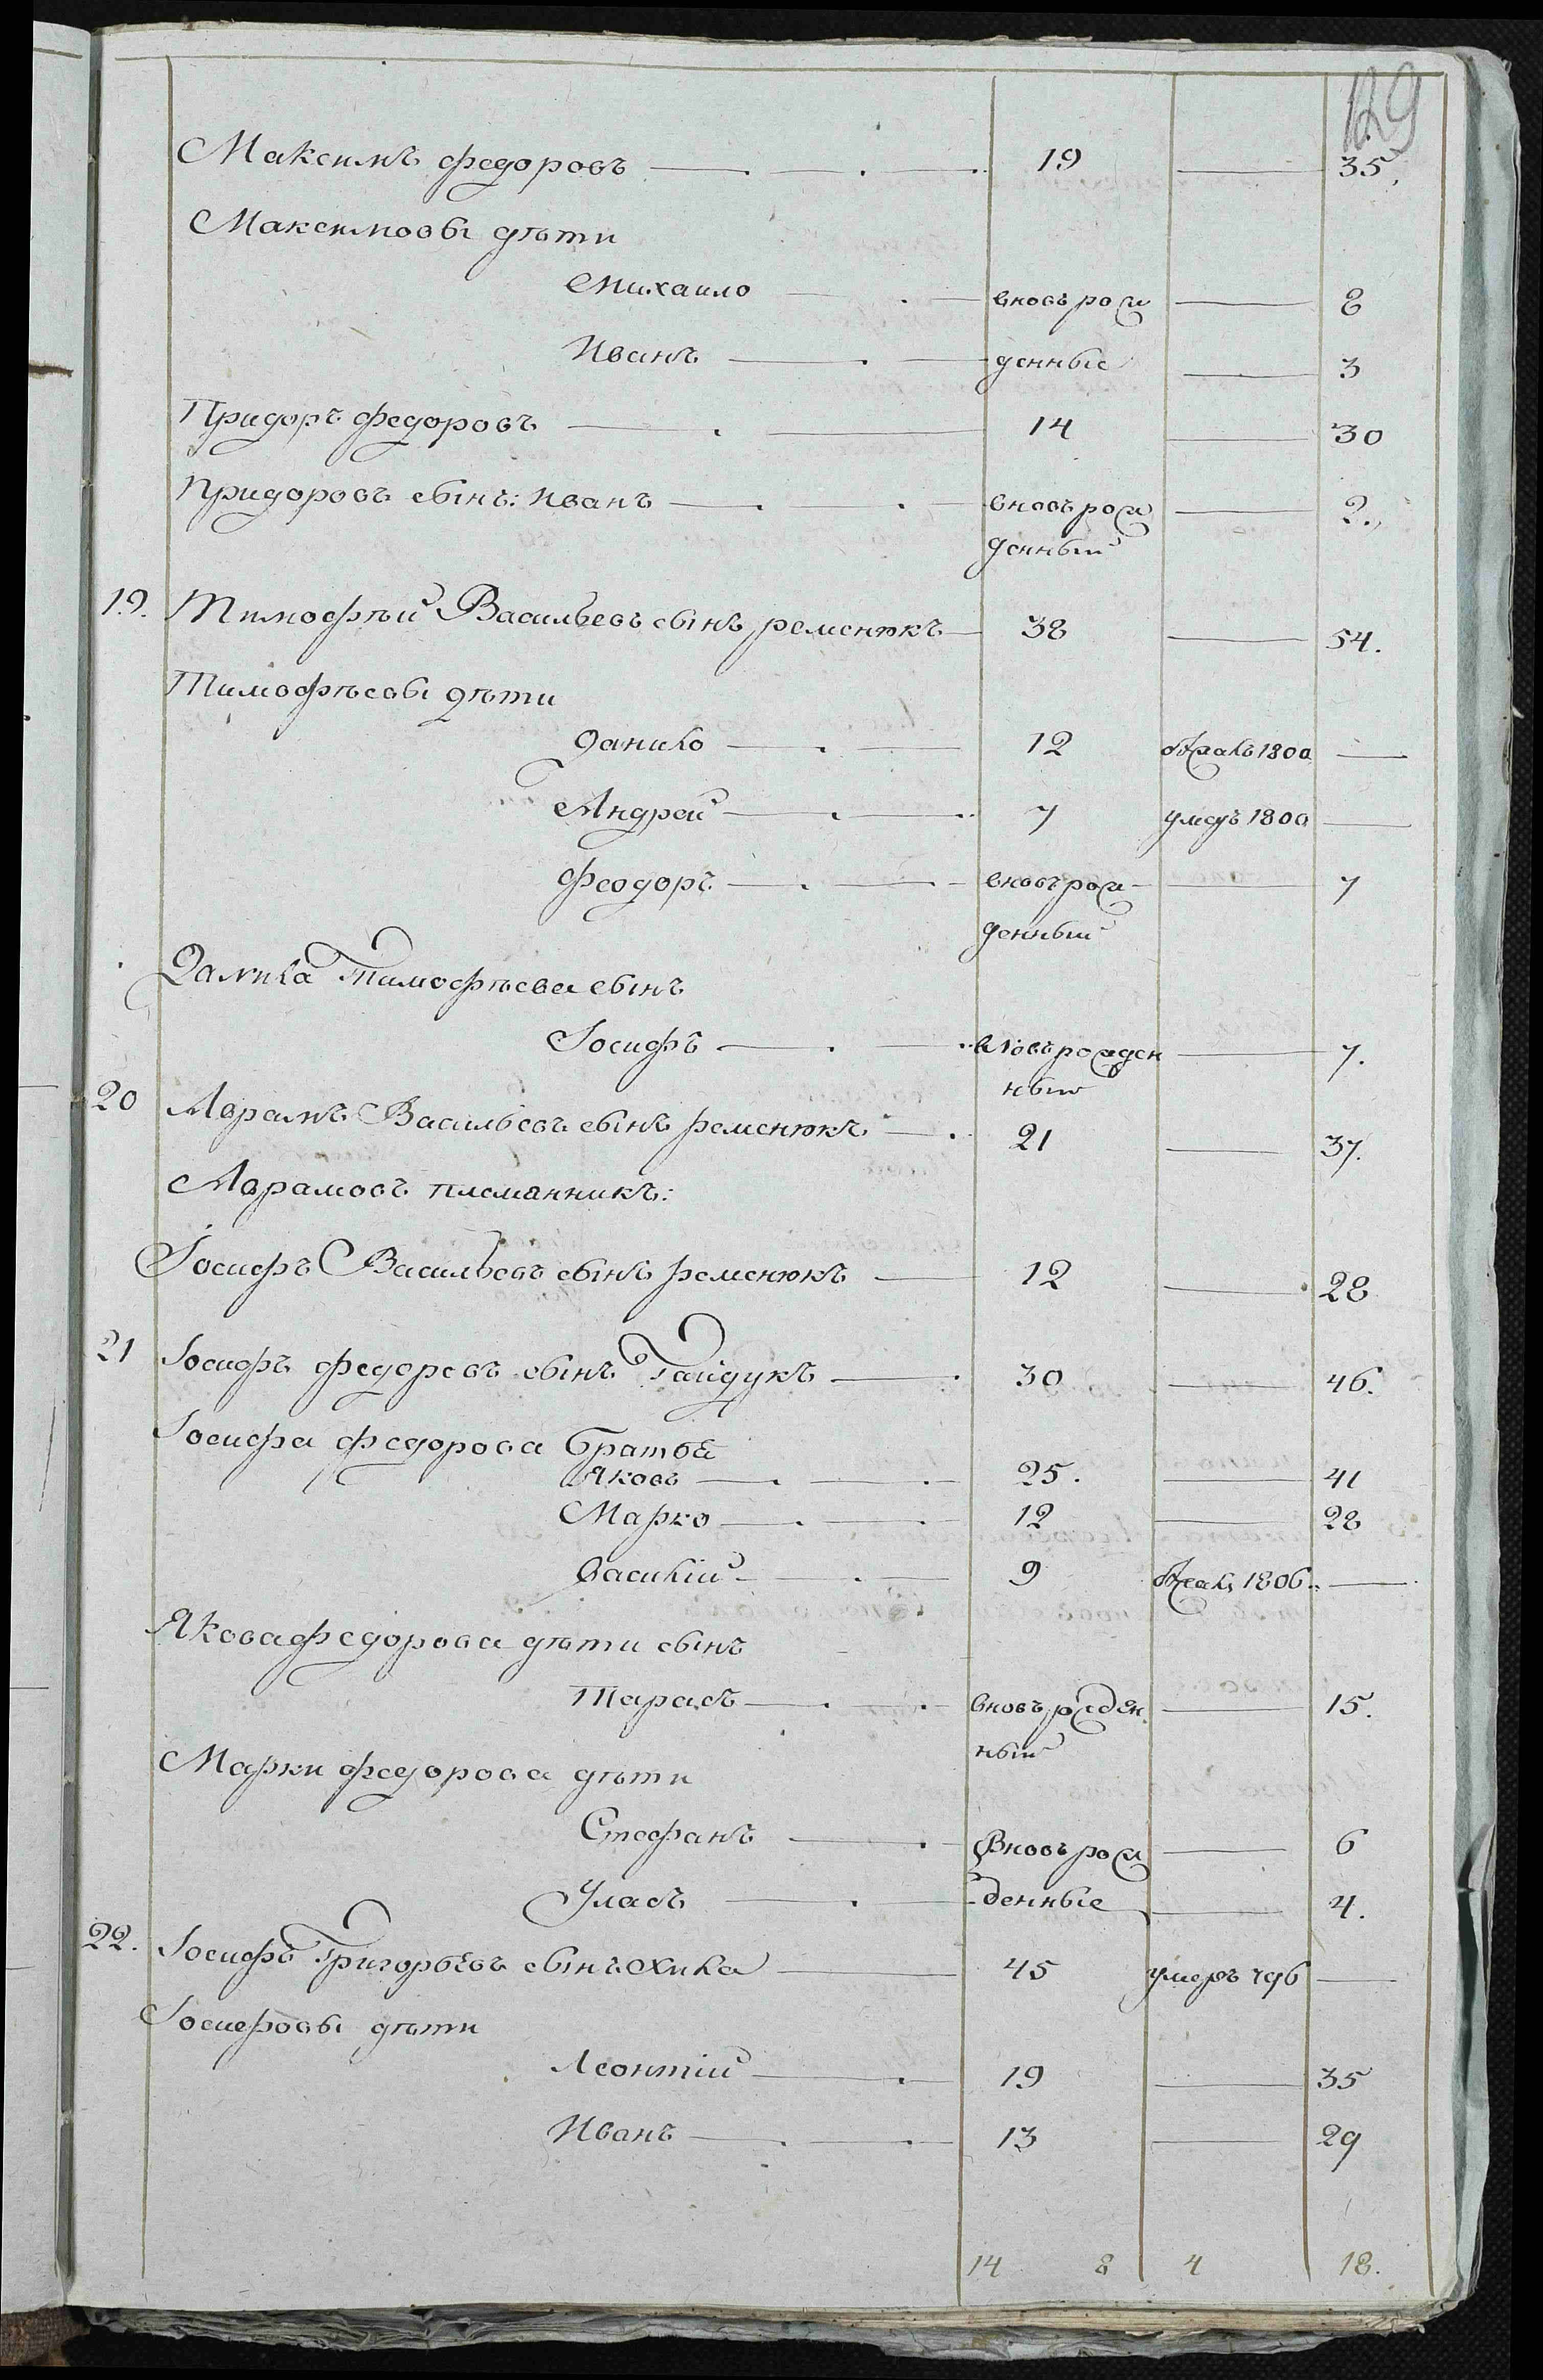 129
Максимъ федоровъ 19 35,
Максимовы дѣти
Михаило вновь рож 8
Иванъ денные 3
Придоръ федоровъ 14 30
Придоровъ сынъ: Иванъ вновь рож 2.
денный
19. Тимофѣй Васильевъ сынъ ременюкъ 38 54.
Тимофѣевы дѣти
Данило 12 1800
Андрей 7 умеръ 1800
Феодоръ вновь рож 7
денный
Данила Тимофѣева сынъ
Іосифъ вновь рожден 7.
ный
20 Аврамъ Васильевъ сынъ ременюкъ 21 37.
Аврамовъ племянникъ:
Іосифъ Васильевъ сынъ ременюкъ 12 28
21 Іосифъ федоровъ сынъ Гайдукъ 30 46.
Іосифа федорова братья
Яковъ 25. 41
Марко 12 28
Василій 9 1806.
Якова федорова дѣти сынъ
Тарасъ вновь рожден 15.
ный
Марки федорова дѣти
Стефанъ Вновь рож 6
Уласъ денные 4.
22. Іосифъ Григорьевъ сынъ 45 умеръ 796
Іосифовы дѣти
Леонтій 19 35
Иванъ 13 29
14 8 4 18.